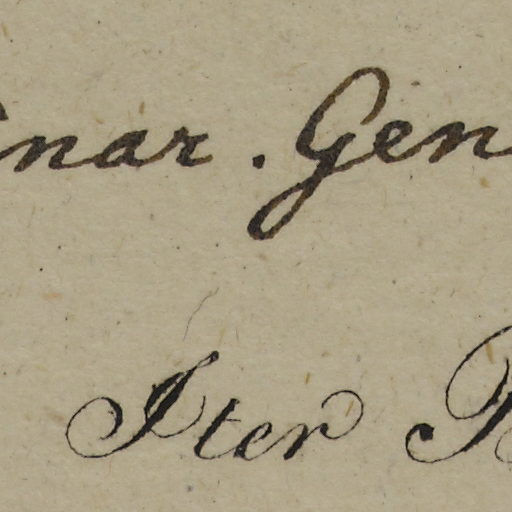 nar. Gen
Iter